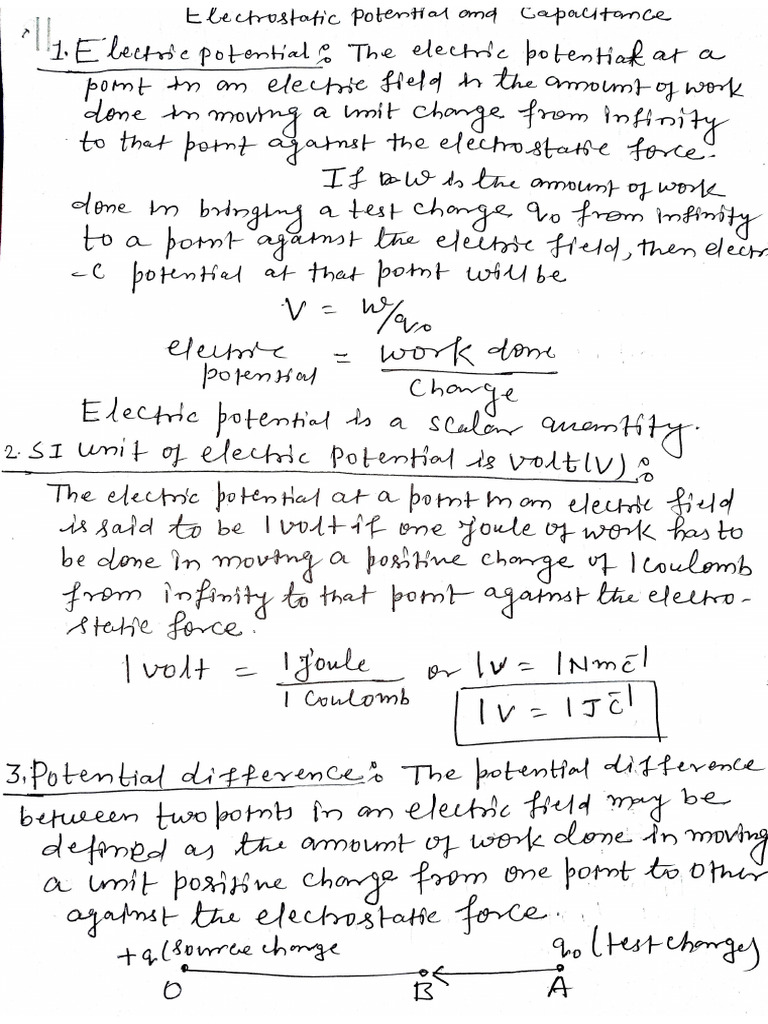 Electrostatic Potential and Capacitance
1. Electric potential : The electric potential at a
point in an electric field is the amount of work
done in moving a unit charge from infinity
to that point against the electrostatic force.
If W is the amount of work
done in bringing a test charge q₀ from infinity
to a point against the electric field, then electri
-c potential at that point will be
V = W/q₀
electric potential = work done / charge
Electric potential is a scalar quantity.
2. SI unit of electric Potential is volt(V) :
The electric potential at a point in an electric field
is said to be 1 volt if one Joule of work has to
be done in moving a positive charge of 1 coulomb
from infinity to that point against the electro-
static force.
1 volt = 1 Joule / 1 Coulomb or 1V = 1NmC⁻¹
1V = 1JC⁻¹
3. Potential difference : The potential difference
between two points in an electric field may be
defined as the amount of work done in moving
a unit positive charge from one point to other
against the electrostatic force.
+q (source charge q₀ (test charge)
O B A